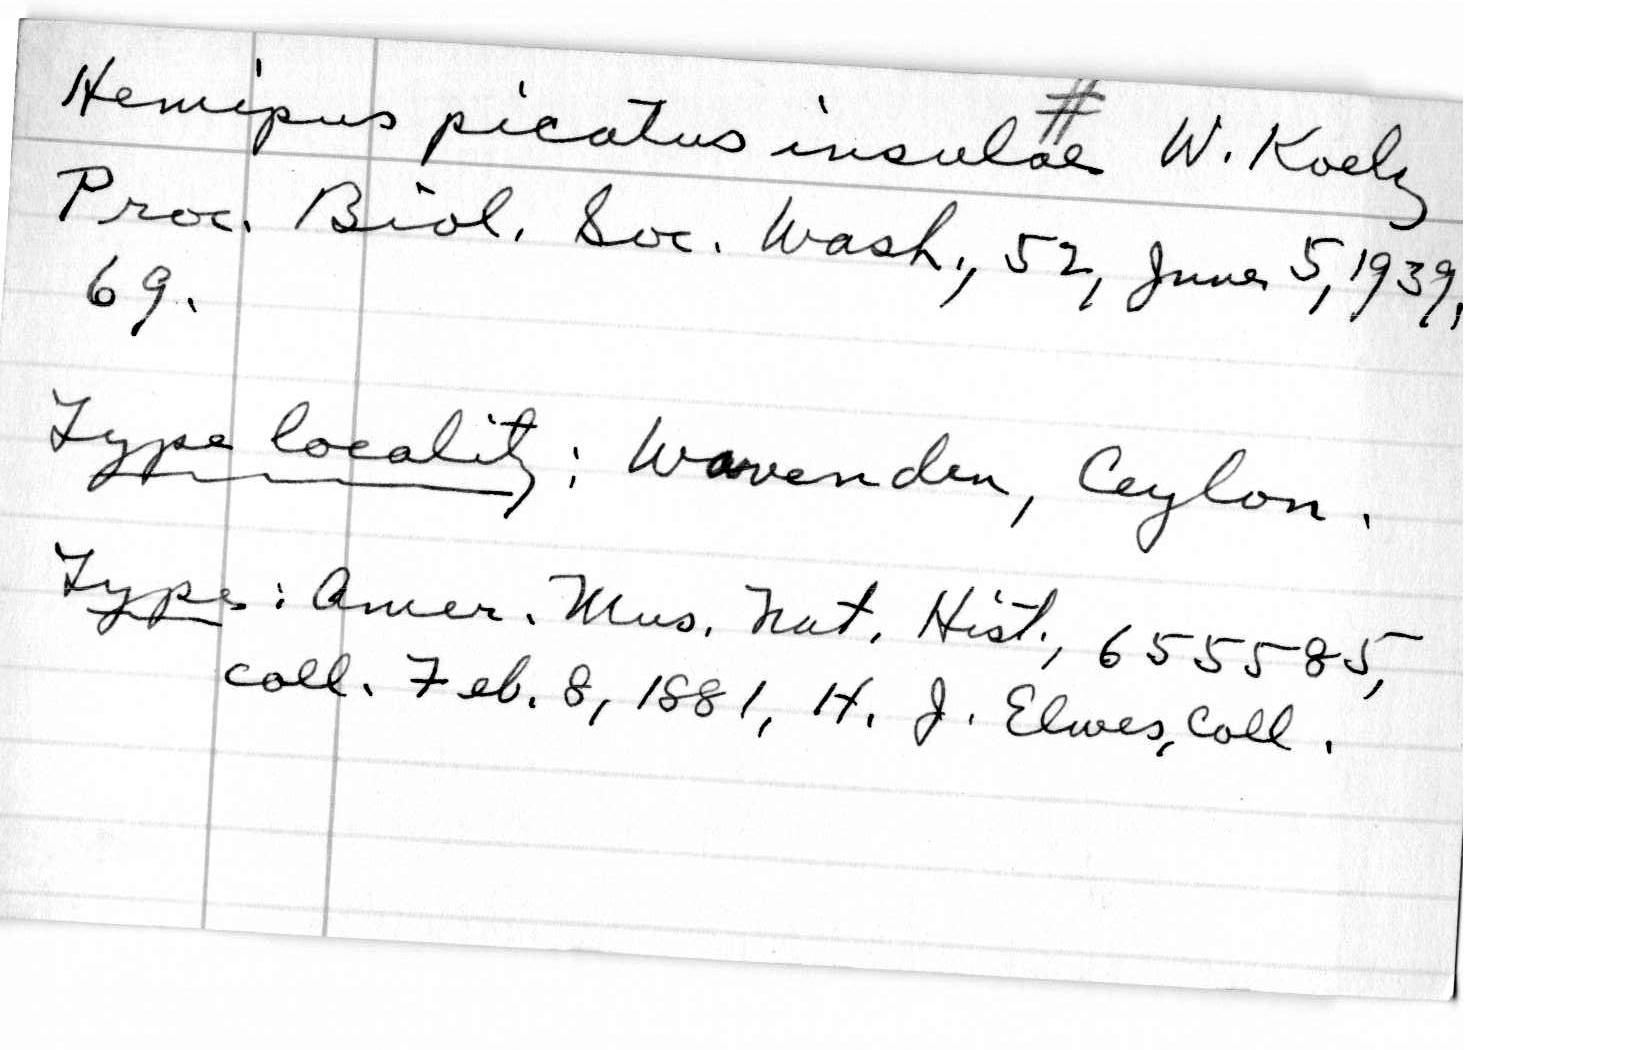 #
Hemipus picatus insulae W. Koelz
Proc. Biol. Soc. Wash., 52, June 5, 1939,
69.
Type locality: Wavenden, Ceylon.
Type: Amer. Mus. Nat. Hist., 655585,
coll. Feb. 8, 1881, H. J. Elwes, Coll.